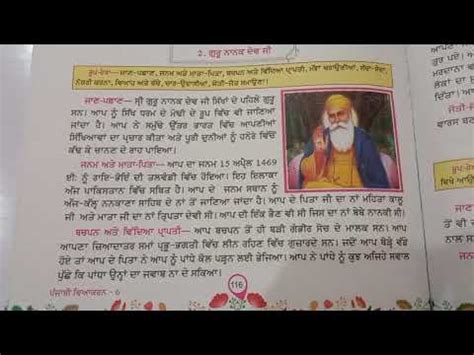 2. ਗੁਰੂ ਨਾਨਕ ਦੇਵ ਜੀ
ਰੂਪ-ਰੇਖਾ— ਜਾਣ-ਪਛਾਣ, ਜਨਮ ਅਤੇ ਮਾਤਾ-ਪਿਤਾ, ਬਚਪਨ ਅਤੇ ਵਿੱਦਿਆ ਪ੍ਰਾਪਤੀ, ਮੱਝਾਂ ਚਰਾਉਣੀਆਂ, ਸੱਚਾ-ਸੌਦਾ,
ਨੌਕਰੀ ਕਰਨਾ, ਵਿਆਹ ਅਤੇ ਬੱਚੇ, ਚਾਰ-ਉਦਾਸੀਆਂ, ਜੋਤੀ-ਜੋਤ ਸਮਾਉਣਾ।
ਜਾਣ-ਪਛਾਣ— ਸ੍ਰੀ ਗੁਰੂ ਨਾਨਕ ਦੇਵ ਜੀ ਸਿੱਖਾਂ ਦੇ ਪਹਿਲੇ ਗੁਰੂ
ਸਨ। ਆਪ ਨੂੰ ਸਿੱਖ ਧਰਮ ਦੇ ਮੋਢੀ ਦੇ ਰੂਪ ਵਿੱਚ ਵੀ ਜਾਣਿਆਂ
ਜਾਂਦਾ ਹੈ। ਆਪ ਨੇ ਸਮੁੱਚੇ ਉੱਤਰ ਭਾਰਤ ਵਿੱਚ ਆਪਣੀਆਂ
ਸਿੱਖਿਆਵਾਂ ਦਾ ਪ੍ਰਚਾਰ ਕੀਤਾ ਅਤੇ ਪੂਰੀ ਦੁਨੀਆਂ ਨੂੰ ਹਨੇਰੇ ਵਿੱਚੋਂ
ਕੱਢ ਕੇ ਚਾਨਣ ਦੇ ਰਾਹ ਪਾਇਆ।
ਜਨਮ ਅਤੇ ਮਾਤਾ-ਪਿਤਾ— ਆਪ ਦਾ ਜਨਮ 15 ਅਪ੍ਰੈਲ 1469
ਈ: ਨੂੰ ਰਾਇ-ਭੋਇੰ ਦੀ ਤਲਵੰਡੀ ਵਿੱਚ ਹੋਇਆ। ਇਹ ਇਲਾਕਾ
ਅੱਜ ਪਾਕਿਸਤਾਨ ਵਿੱਚ ਸਥਿਤ ਹੈ। ਆਪ ਦੇ ਜਨਮ ਸਥਾਨ ਨੂੰ
ਅੱਜ-ਕੱਲ੍ਹ ਨਨਕਾਣਾ ਸਾਹਿਬ ਦੇ ਨਾਂ ਤੋਂ ਜਾਣਿਆ ਜਾਂਦਾ ਹੈ। ਆਪ ਦੇ ਪਿਤਾ ਜੀ ਦਾ ਨਾਂ ਮਹਿਤਾ ਕਾਲੂ
ਜੀ ਅਤੇ ਮਾਤਾ ਜੀ ਦਾ ਨਾਂ ਤ੍ਰਿਪਤਾ ਦੇਵੀ ਸੀ। ਆਪ ਦੀ ਇੱਕ ਭੈਣ ਵੀ ਸੀ ਜਿਸ ਦਾ ਨਾਂ ਬੇਬੇ ਨਾਨਕੀ ਸੀ।
ਬਚਪਨ ਅਤੇ ਵਿੱਦਿਆ ਪ੍ਰਾਪਤੀ— ਆਪ ਬਚਪਨ ਤੋਂ ਹੀ ਬੜੀ ਗੰਭੀਰ ਸੋਚ ਦੇ ਮਾਲਕ ਸਨ। ਆਪ
ਆਪਣਾ ਜ਼ਿਆਦਾਤਰ ਸਮਾਂ ਪ੍ਰਭੂ-ਭਗਤੀ ਵਿੱਚ ਲੀਨ ਰਹਿਣ ਵਿੱਚ ਗੁਜ਼ਾਰਦੇ ਸਨ। ਜਦੋਂ ਆਪ ਥੋੜ੍ਹੇ ਵੱਡੇ
ਹੋਏ ਤਾਂ ਆਪ ਦੇ ਪਿਤਾ ਜੀ ਨੇ ਆਪ ਨੂੰ ਪਾਂਧੇ ਕੋਲ ਪੜ੍ਹਨ ਲਈ ਭੇਜਿਆ। ਆਪ ਨੇ ਪਾਂਧੇ ਨੂੰ ਕੁਝ ਅਜਿਹੇ ਸਵਾਲ
ਪੁੱਛੇ ਕਿ ਪਾਂਧਾ ਉਨ੍ਹਾਂ ਦਾ ਜਵਾਬ ਨਾ ਦੇ ਸਕਿਆ।
ਪੰਜਾਬੀ ਵਿਆਕਰਨ - 6
116